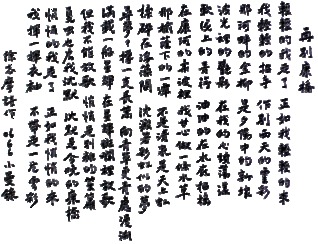 再别康橋
輕輕的我走了 正如我輕輕的來
我輕輕的招手 作别西天的雲彩
那河畔的金柳 是夕陽中的新娘
波光裡的艷影 在我的心頭蕩漾
軟泥上的青荇 油油的在水底招搖
在康河的柔波裡 我甘心做一條水草
那榆蔭下的一潭 不是清泉是天上虹
揉碎在浮藻間 沉澱着彩虹似的夢
尋夢？撐一支長篙 向青草更青處漫溯
滿載一船星輝 在星輝斑斕裡放歌
但我不能放歌 悄悄是别離的笙簫
夏蟲也爲我沉默 沉默是今晚的康橋
悄悄的我走了 正如我悄悄的來
我揮一揮衣袖 不帶走一片雲彩
徐志摩詩作